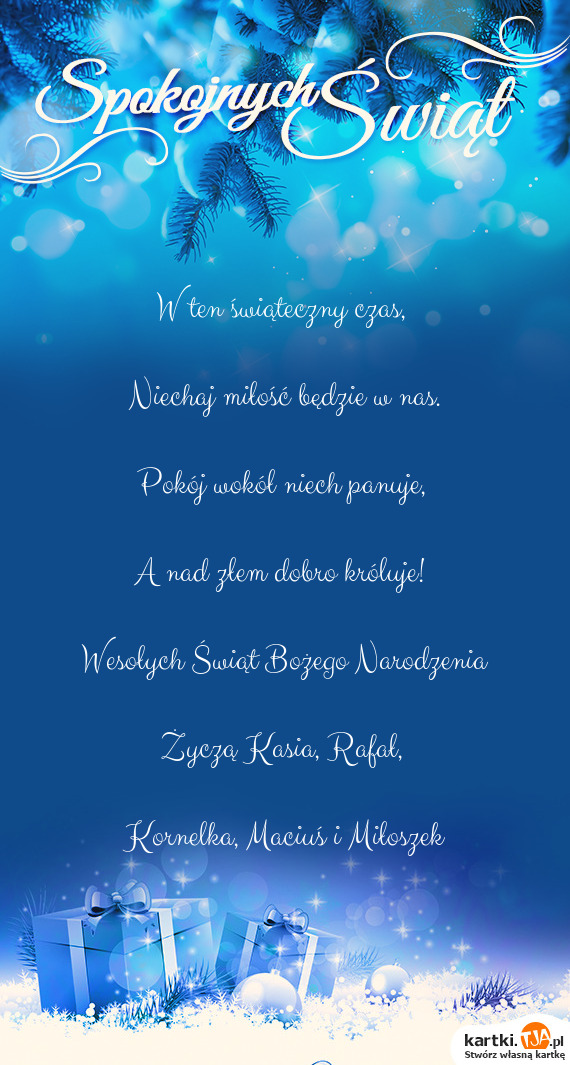 Spokojnych Świąt
W ten świąteczny czas,
Niechaj miłość będzie w nas.
Pokój wokół niech panuje,
A nad złem dobro króluje!
Wesołych Świąt Bożego Narodzenia
Życzą Kasia, Rafał,
Kornelka, Maciuś i Miłoszek
kartki.TJA.pl
Stwórz własną kartkę